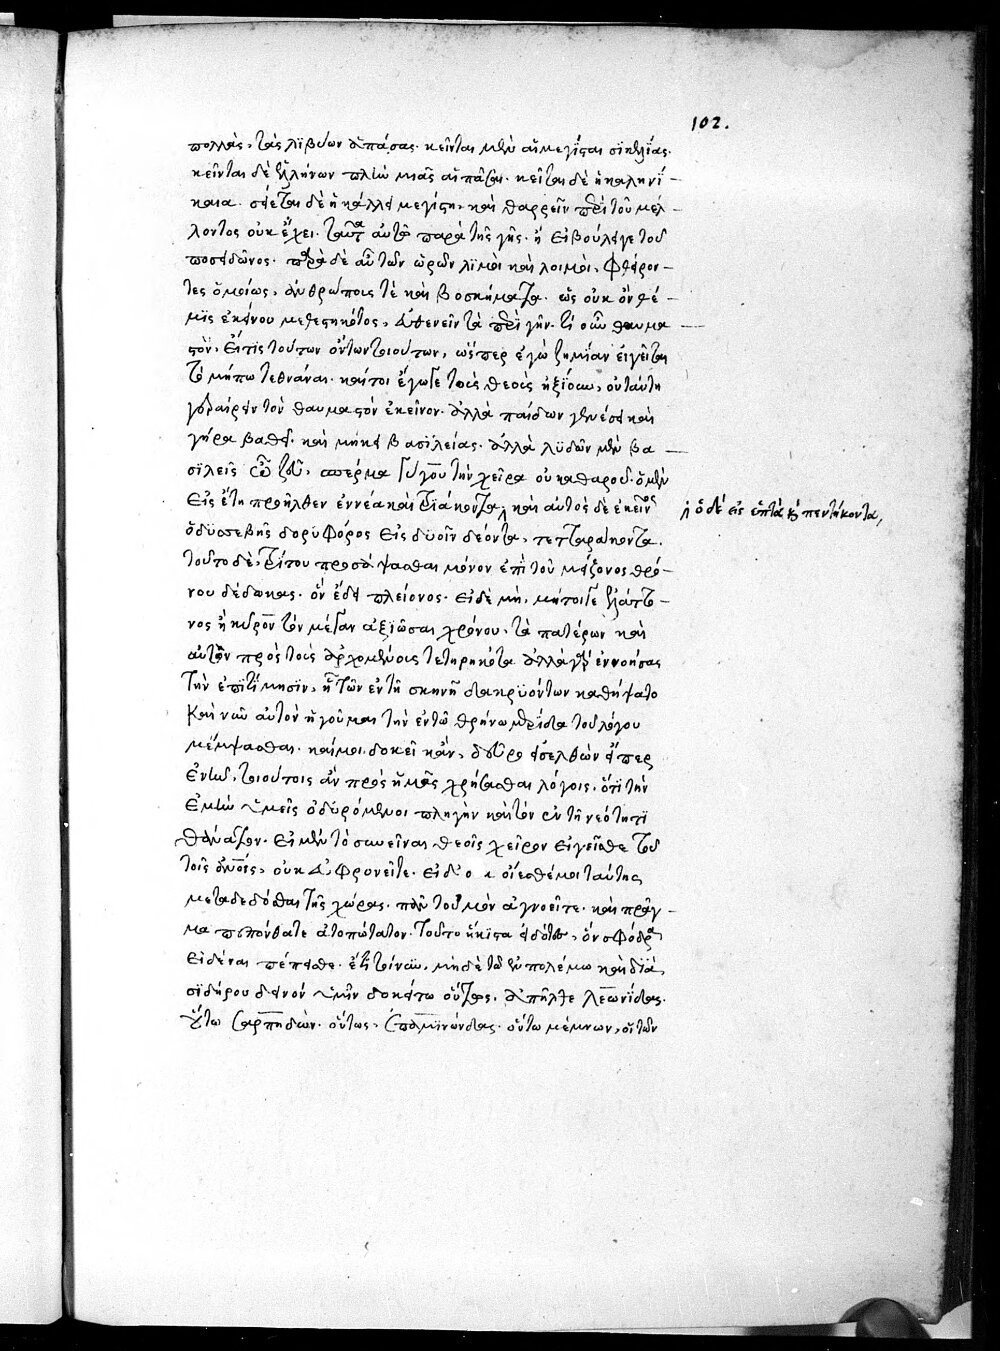 102.
πολλὰς, τὰς λϊβύων ἁπάσας. κεῖνται μὲν αἱ μεγίσται σϊκελίας.
κεῖνται δὲ ἑλλήνων πλὴν μιᾶς αἱ πᾶσαι. κεῖται δὲ ἡ καλὴ νί-
καια. σείεται δὲ ἡ κάλλει μεγίστη, καὶ θαρρεῖν περὶ τοῦ μέλ-
λοντος οὐκ ἔχει. ταῦτα αὐτῷ παρὰ τῆς γῆς. ἢ εἰ βούλει γε τοῦ
ποσειδῶνος. παρὰ δὲ αὖ τῶν ὡρῶν λϊμοὶ καὶ λοιμοὶ, φθείρον-
τες ὁμοίως, ἀνθρώποις τὲ καὶ βοσκήματα. ὡς οὐκ ὂν θέ-
μϊς ἐκείνου μεθεστηκότος, εὐθενεῖν τὰ περὶ γῆν. τί οὖν θαυμα
στὸν, εἴ τϊς τούτων ὄντων τοιούτων, ὥσπερ ἐγὼ ζημίαν ἡγεῖται
τὸ μήπω τεθνάναι. καίτοι ἔγωγε τοὺς θεοὺς ἠξίουν, οὐ ταύτῃ
γεραίρειν τὸν θαυμαστὸν ἐκεῖνον. ἀλλὰ παίδων γενέσει καὶ
γήρα βαθεῖ. καὶ μήκει βασϊλείας. ἀλλὰ λϋδῶν μὲν βα
σϊλεῖς ὦ ζεῦ, σπέρμα γύγου τὴν χεῖρα οὐ καθαροῦ. ὁ μὲν
εἰς ἔτη προῆλθεν ἐννέα καὶ τρϊάκοντα, καὶ αὐτὸς δὲ ἐκεῖνος
ἢ ὁ δέ εἰς ἑπτὰ καὶ πεντήκοντα,
ὁ δϋσσεβὴς δορϋφόρος εἰς δυοῖν δέοντα, τετταράκοντα.
τούτῳ δὲ, τρίτου προσάψασθαι μόνον ἐπὶ τοῦ μείζονος θρό-
νου δέδωκας. ὃν ἔδει πλείονος. εἰ δὲ μὴ, μήτοι γε ἐλάττο-
νος ἢ κῦρον τὸν μέγαν ἀξιῶσαι χρόνου, τὰ πατέρων καὶ
αὐτὸν πρὸς τοὺς ἀρχομένους τετηρηκότα ἀλλὰ γὰρ ἐννοήσας
τὴν ἐπϊτίμησϊν, ἧ τῶν ἐν τῇ σκηνῇ δακρϋόντων καθήψατο
καὶ νῦν αὐτὸν ἡγοῦμαι τὴν ἐν τῶ θρήνω μερίδα τοῦ λόγου
μέμψασθαι. καί μοι δοκεῖ κἂν, δεῦρο εἰσελθὼν εἴπερ
ἐνῆν, τοιούτοις ἂν πρὸς ἡμᾶς χρήσασθαι λόγοις. ὅτϊ τὴν
ἐμὴν ὑμεῖς ὀδϋρόμενοι πληγὴν καὶ τὸν ἐν τῇ νεότητϊ
θάνατον. εἰ μὲν τὸ συνεῖναι θεοῖς χεῖρον ἡγεῖσθε τοῦ
τοῖς ἀνοις, οὐκ εὖ φρονεῖτε. εἰ δὲ οὐκ οἴεσθέ μοι ταύτης
μεταδεδόσθαι τῆς χώρας. πᾶν τοὐμὸν ἀγνοεῖτε. καὶ πρᾶγ-
μα πεπόνθατε ἀτοπώτατον. τοῦτο ἥκιστα εἰδότες, ὃν σφόδρα
εἰδέναι πέπεισθε. ἔτι τοίνυν, μηδὲ τὸ ἐν πολέμω καὶ διὰ
σϊδήρου δεινὸν ὑμῖν δοκείτω οὕτως. ἀπῆλθε λεωνίδας.
οὕτω σαρπηδὼν. οὕτως, ἐπαμϊνώνδας. οὕτω μέμνων, οἱ τῶν